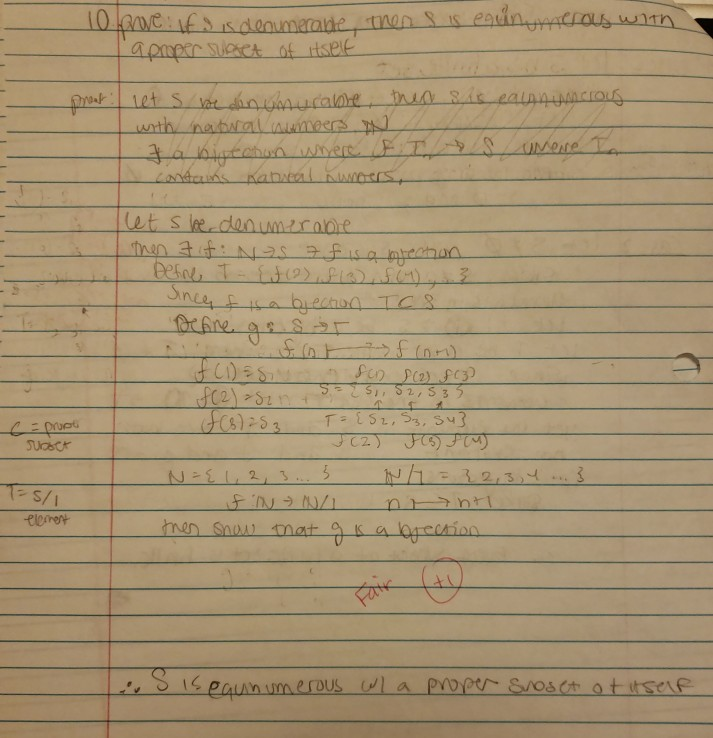 10 prove: if S is denumerable, then S is equinumerous with
a proper subset of itself
proof: Let S be denumerable, then S is equinumerous
with natural numbers N
∃ a bijection where f: In → S where In
contains natural numbers,
Let S be denumerable
then ∃ f: N→S ∋ f is a bijection
Define T = {f(2), f(3), f(4), ...}
Since f is a bijection T⊂S
Define g: S→T
f(n) ↦ f(n+1)
f(1)=S1 f(1) f(2) f(3)
f(2)=S2 S={S1, S2, S3}
f(3)=S3 T={S2, S3, S4}
f(2) f(3) f(4)
C = proper
subset
N={1, 2, 3...} N/1 = {2,3,4...}
T=S/1
element
f: N→N/1 n↦n+1
then show that g is a bijection
Fair +1
∴ S is equinumerous w/ a proper subset of itself